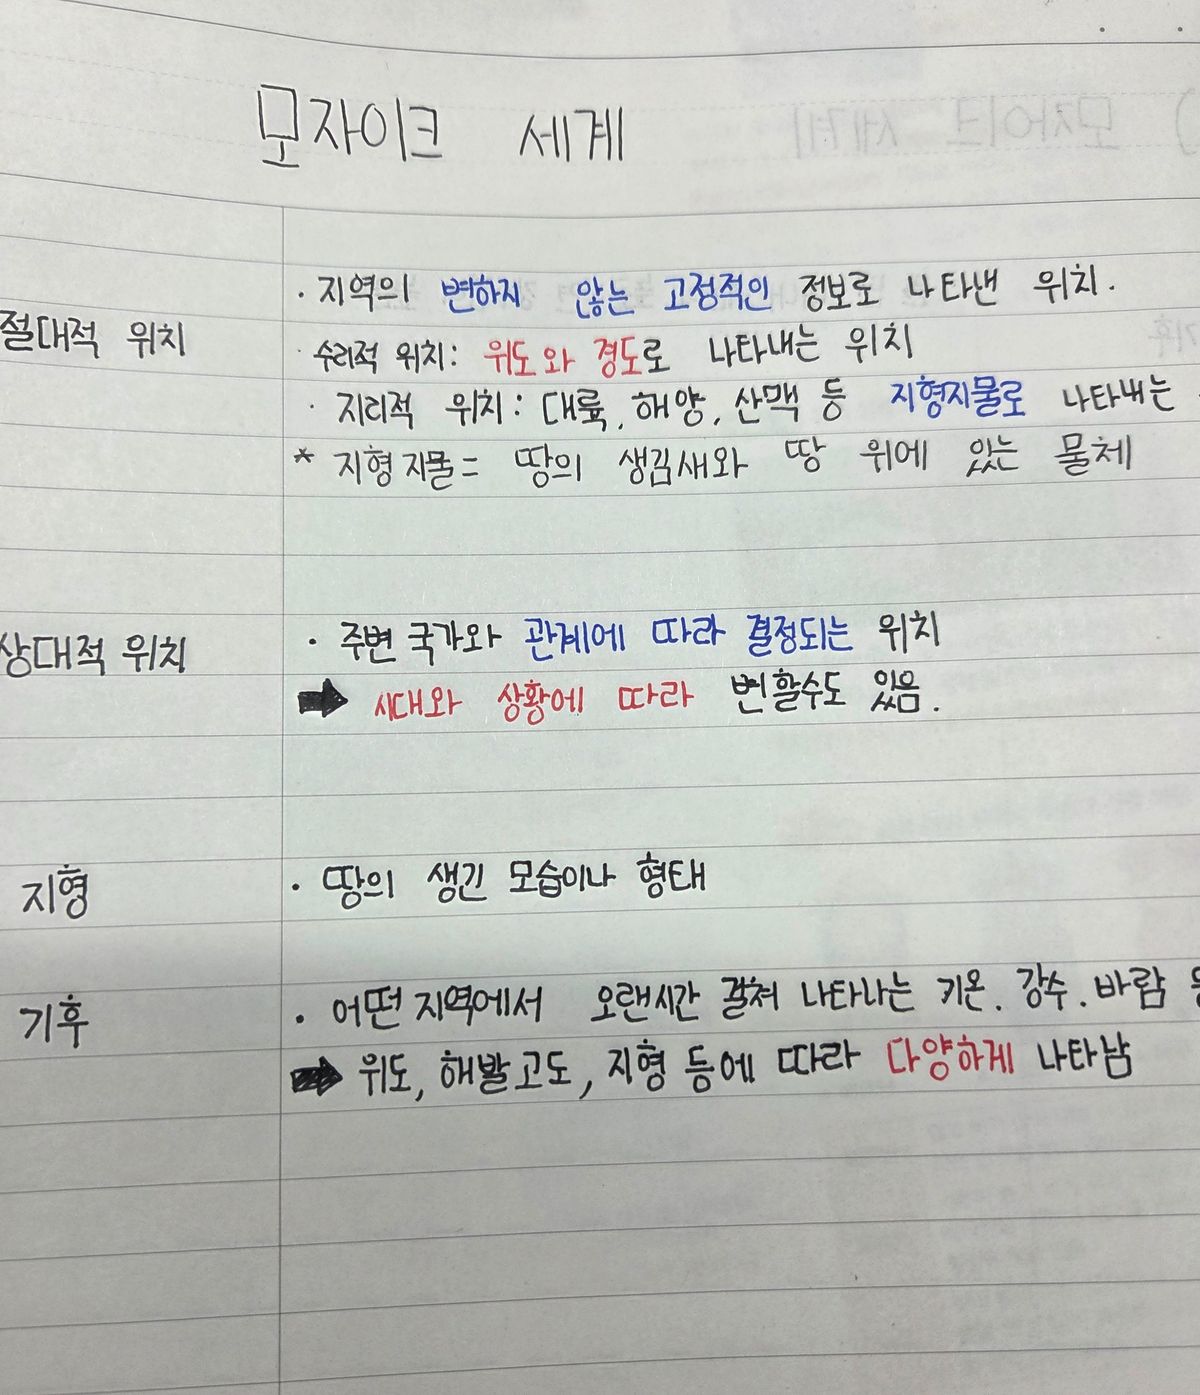 모자이크 세계
· 지역의 변하지 않는 고정적인 정보로 나타낸 위치.
절대적 위치
· 수리적 위치: 위도와 경도로 나타내는 위치
· 지리적 위치: 대륙, 해양, 산맥 등 지형지물로 나타내는
* 지형지물 = 땅의 생김새와 땅 위에 있는 물체
상대적 위치
· 주변 국가와 관계에 따라 결정되는 위치
➡ 시대와 상황에 따라 변할수도 있음.
지형
· 땅의 생긴 모습이나 형태
기후
· 어떤 지역에서 오랜시간 걸쳐 나타나는 기온. 강수. 바람
➡ 위도, 해발고도, 지형 등에 따라 다양하게 나타남